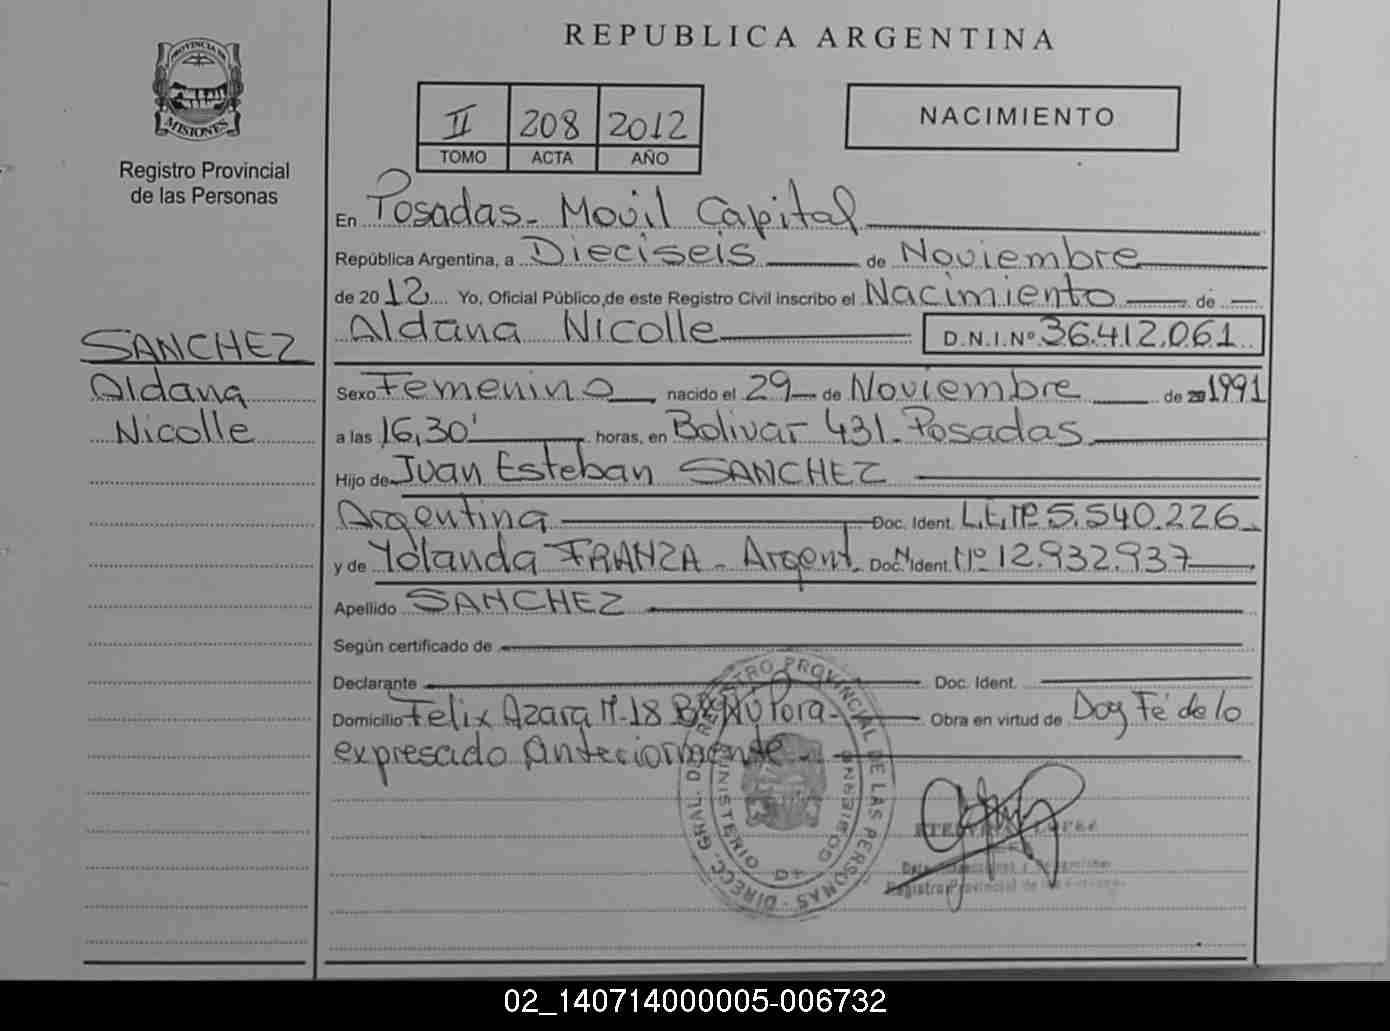 REPUBLICA ARGENTINA
PROVINCIA DE
MISIONES
Registro Provincial
de las Personas
II 208 2012
TOMO ACTA AÑO
NACIMIENTO
En Posadas - Movil Capital
República Argentina, a Dieciseis de Noviembre
de 2012 Yo, Oficial Público de este Registro Civil inscribo el Nacimiento de
Aldana Nicolle D.N.I.Nº 36.412.061
SANCHEZ
Aldana
Nicolle
Sexo Femenino nacido el 29 de Noviembre de 1991
a las 16,30' horas, en Bolivar 431 - Posadas
Hijo de Juan Esteban SANCHEZ
Argentina Doc. Ident. L.E. Nº 5.540.226
y de Yolanda FRANZA - Argent. Doc. Ident. Nº 12.932.937
Apellido SANCHEZ
Según certificado de
Declarante Doc. Ident.
Domicilio Felix Azara M-18 Bº Ñu Pora - Obra en virtud de Doy Fé de lo
expresado anteriormente -
DIRECC. GRAL. DE REGISTRO PROVINCIAL DE LAS PERSONAS
MINISTERIO DE GOBIERNO
LOPEZ
Registro Provincial de las Personas
02_140714000005-006732